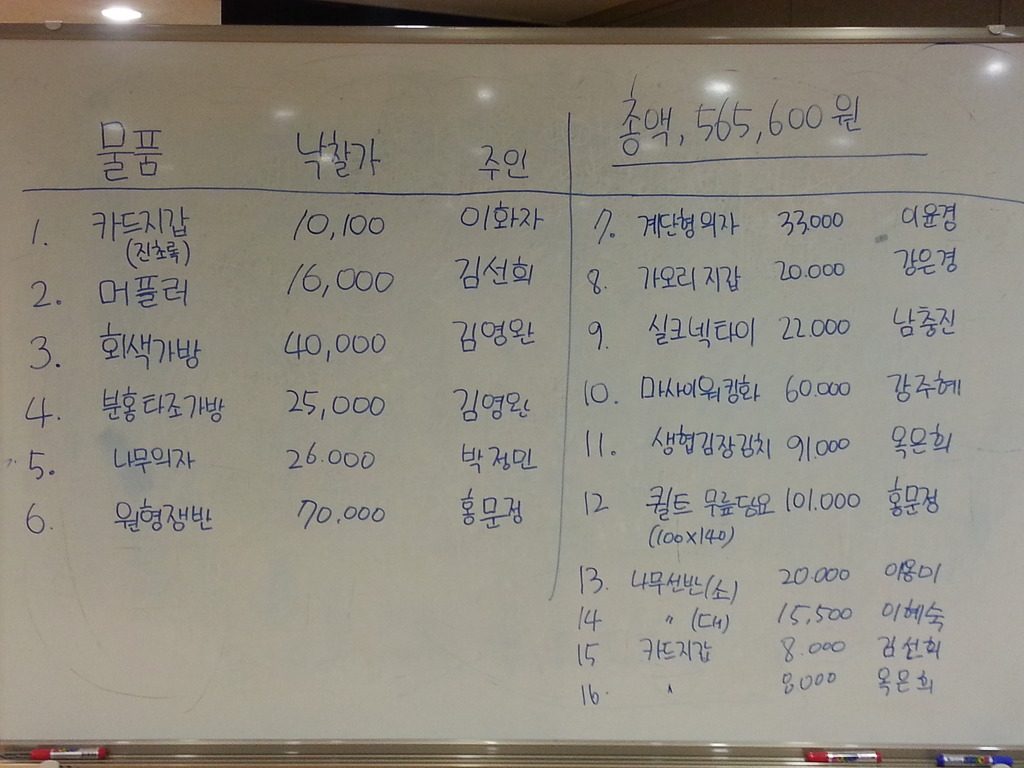 물품 낙찰가 주인
1. 카드지갑 10,100 이화자
(진초록)
2. 머플러 16,000 김선희
3. 회색가방 40,000 김영완
4. 분홍타조가방 25,000 김영완
5. 나무의자 26.000 박정민
6. 원형쟁반 70.000 홍문정
총액, 565,600원
7. 계단형의자 33.000 이윤경
8. 가오리지갑 20.000 강은경
9. 실크넥타이 22.000 남충진
10. 마사이워킹화 60.000 강주혜
11. 생협김장김치 91.000 옥은희
12 퀼트 무릎담요 101.000 홍문정
(100x140)
13. 나무선반(소) 20.000 이용미
14 〃 (대) 15,500 이혜숙
15 카드지갑 8.000 김선희
16. 〃 8000 옥은희